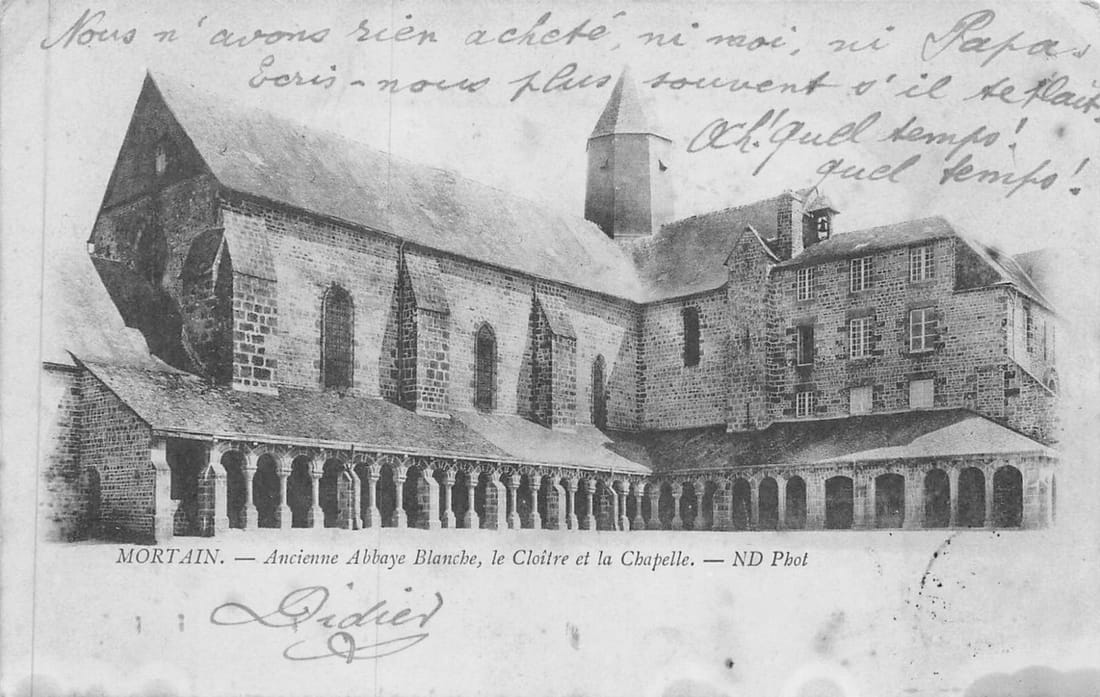 Nous n'avons rien acheté, ni moi, ni Papa.
Ecris-nous plus souvent s'il te plait.
Och! Quel temps!
quel temps!
MORTAIN. — Ancienne Abbaye Blanche, le Cloître et la Chapelle. — ND Phot
Didier